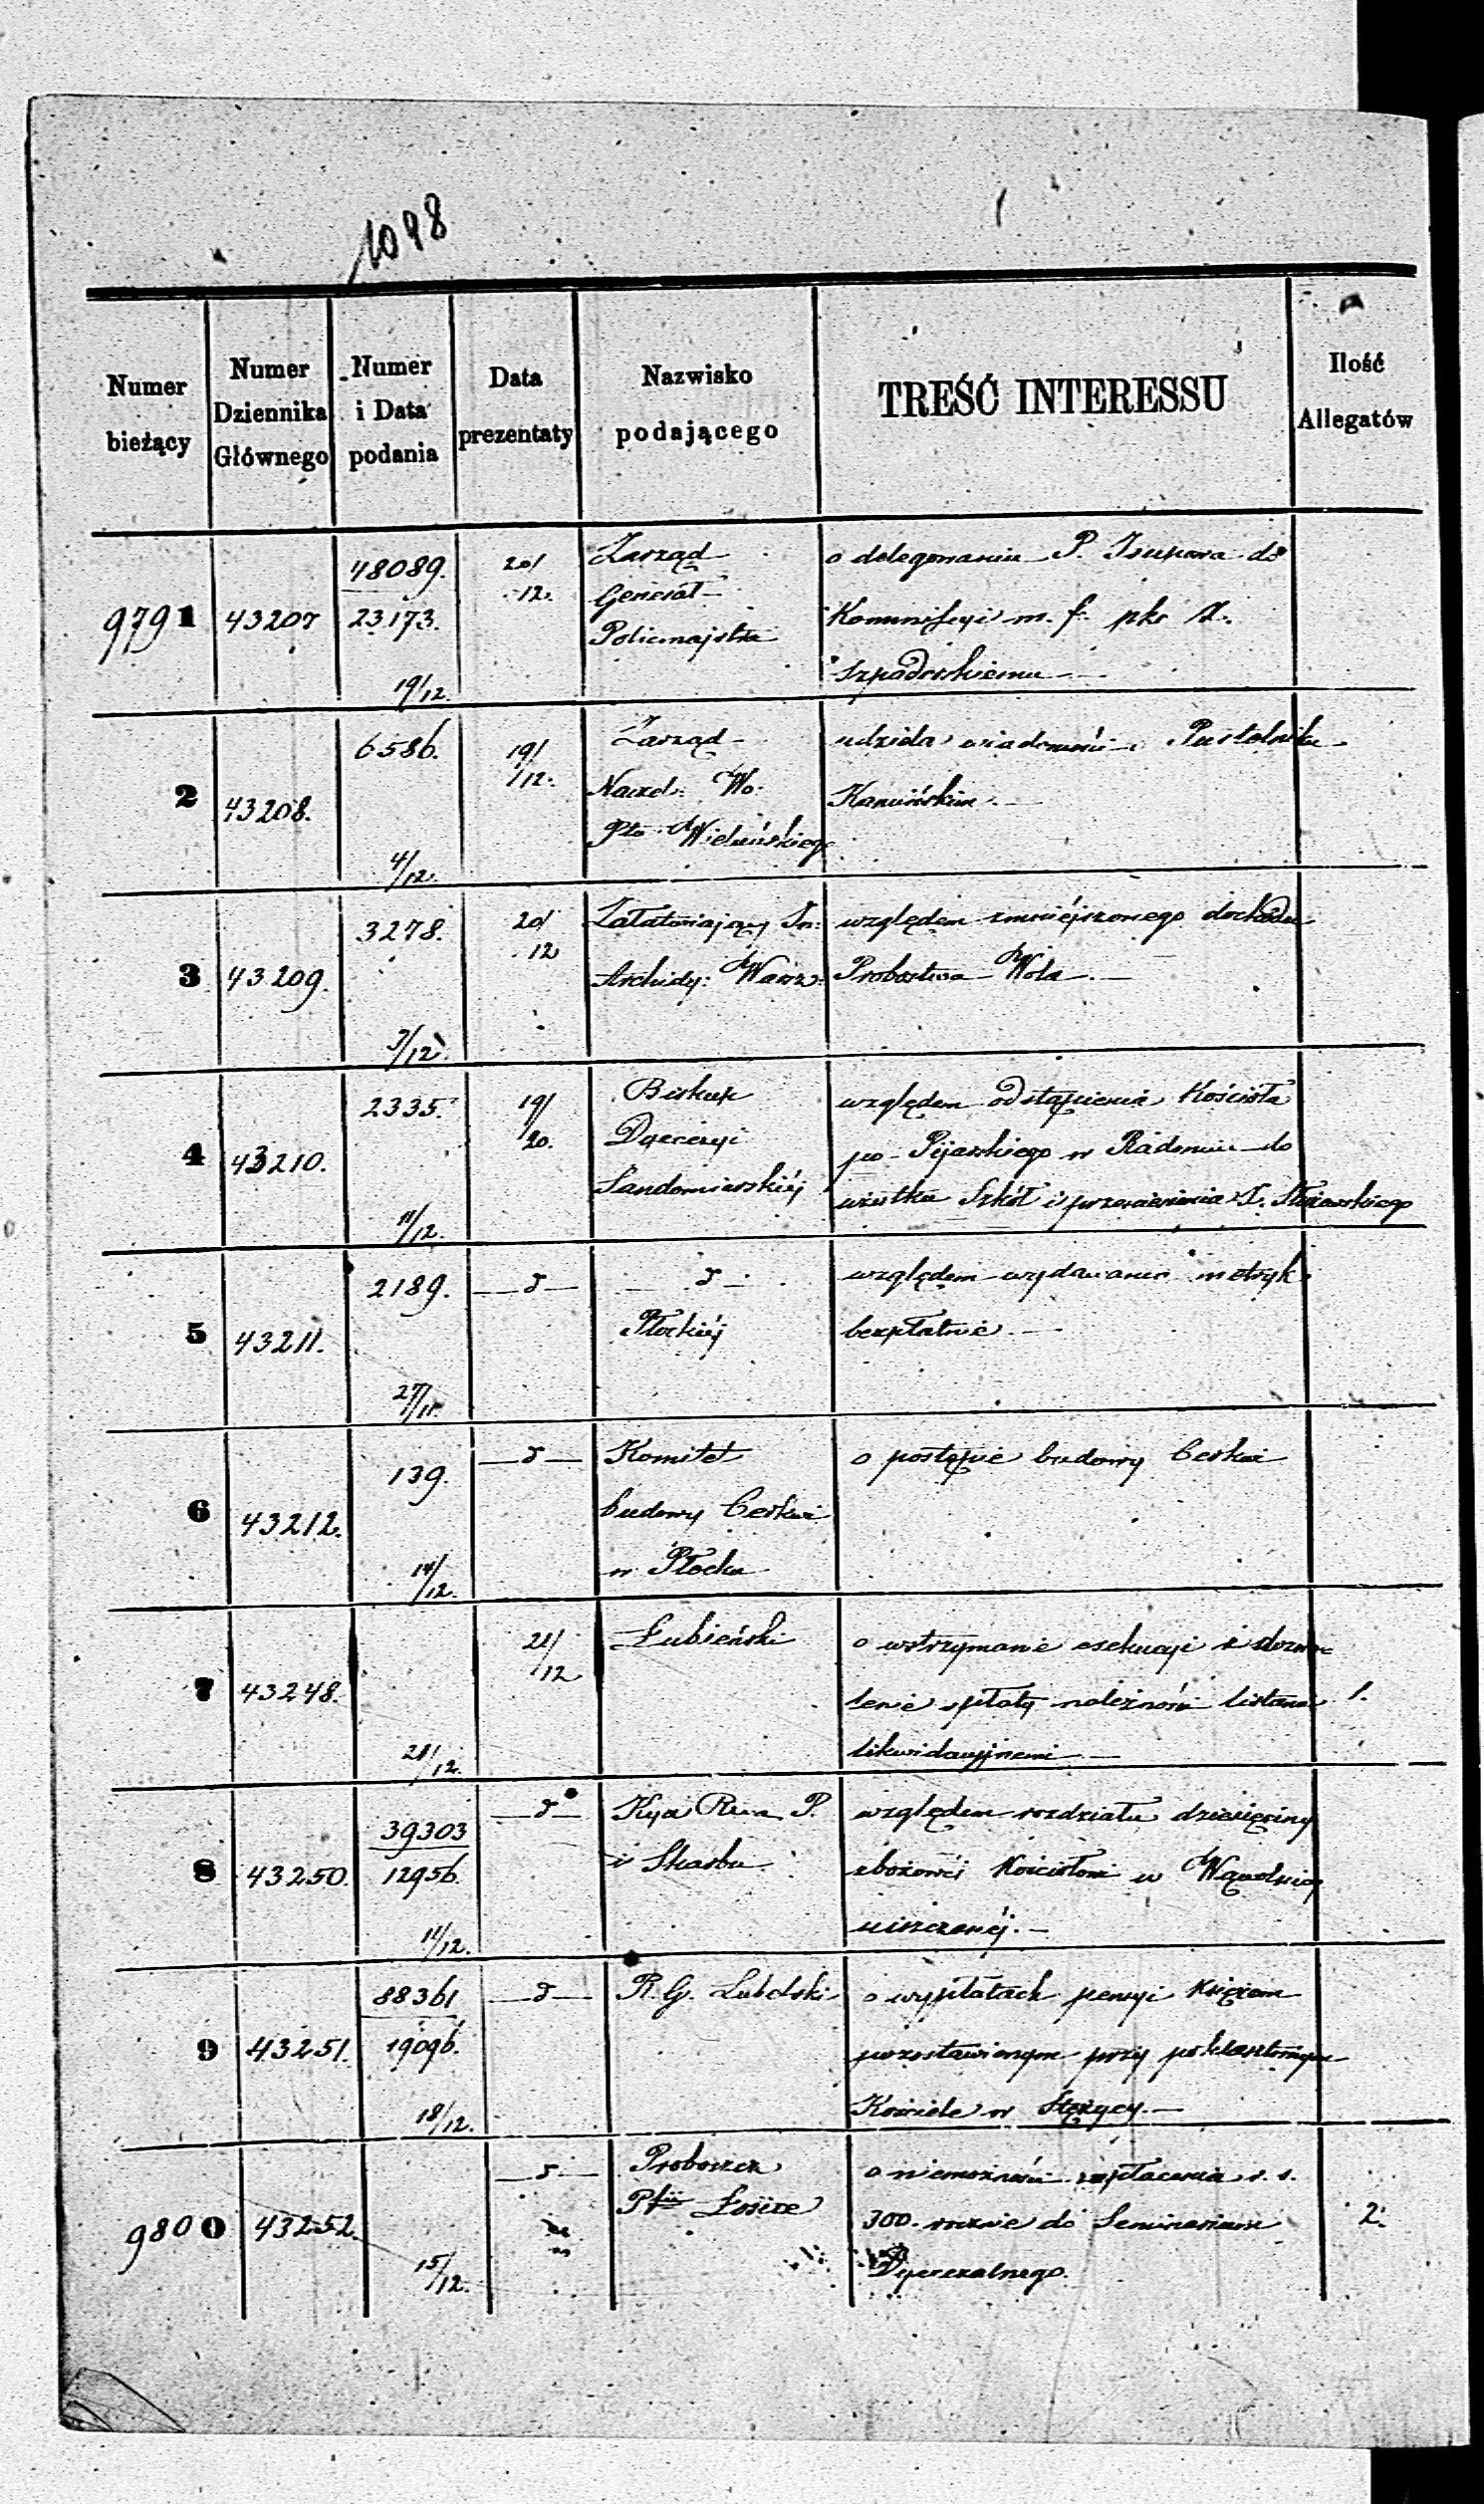 1098
Numer bieżący
Numer Dziennika Głównego
Numer i Data podania
Data prezentaty
Nazwisko podającego
TREŚĆ INTERESSU
Ilość Allegatów
9791 43207 48089. 23173. 19/12. 20/12.
Zarząd
Generał
Policmajstra
o delegowaniu P. Isupowa do
Kommissyi m. f. pko X.
Szpaderskiemu
2 43208. 6586. 4/12. 19/12.
Zarząd
Nacz: Wo:
Ptu Wieluńskiego
udziela wiadomość o Pustelniku
Kamińskim.
3 43209. 3278. 9/12. 20/12
Załatwiający In:
Archidy: Warsz:
względem zmniejszonego dochodu
Probostwa Wola.
4 43210. 2335. 11/12. 19/20.
Biskup
Dyecezyi
Sandomierskiéj
względem odstąpienia Kościoła
po Pijarskiego w Radomiu do
użytku Szkół i przeniesienia X.
5 43211. 2189. 27/11. d
d
Płockiéj
względem wydawania metryk
bezpłatnie.
6 43212. 139. 14/12. d
Komitet
budowy Cerkwi
w Płocku
o postępie budowy Cerkwi
7 43248. 21/12. 21/12
Łubieński
o wstrzymanie exekucyi i dozwo
lenie spłaty należności listami
likwidacyjnemi
1.
8 43250. 39303 12956. 11/12. d
Kyia Rzą. P.
i Skarbu
względem rozdziału dziesięciny
zbożowéj Kościołowi w Wąwolnicy
uiszczanéj.
9 43251. 88361 19096. 18/12. d
R. G. Lubelski
o wypłatach pensyi Księżom
pozostawionym przy poklasztornym
Kościele w Stężycy.
9800 43252. 15/12. d
Proboszcz
Pfii Łosice
o niemożności zapłacenia r. s.
300. rocznie do Seminarium
Dyecezalnego.
2.